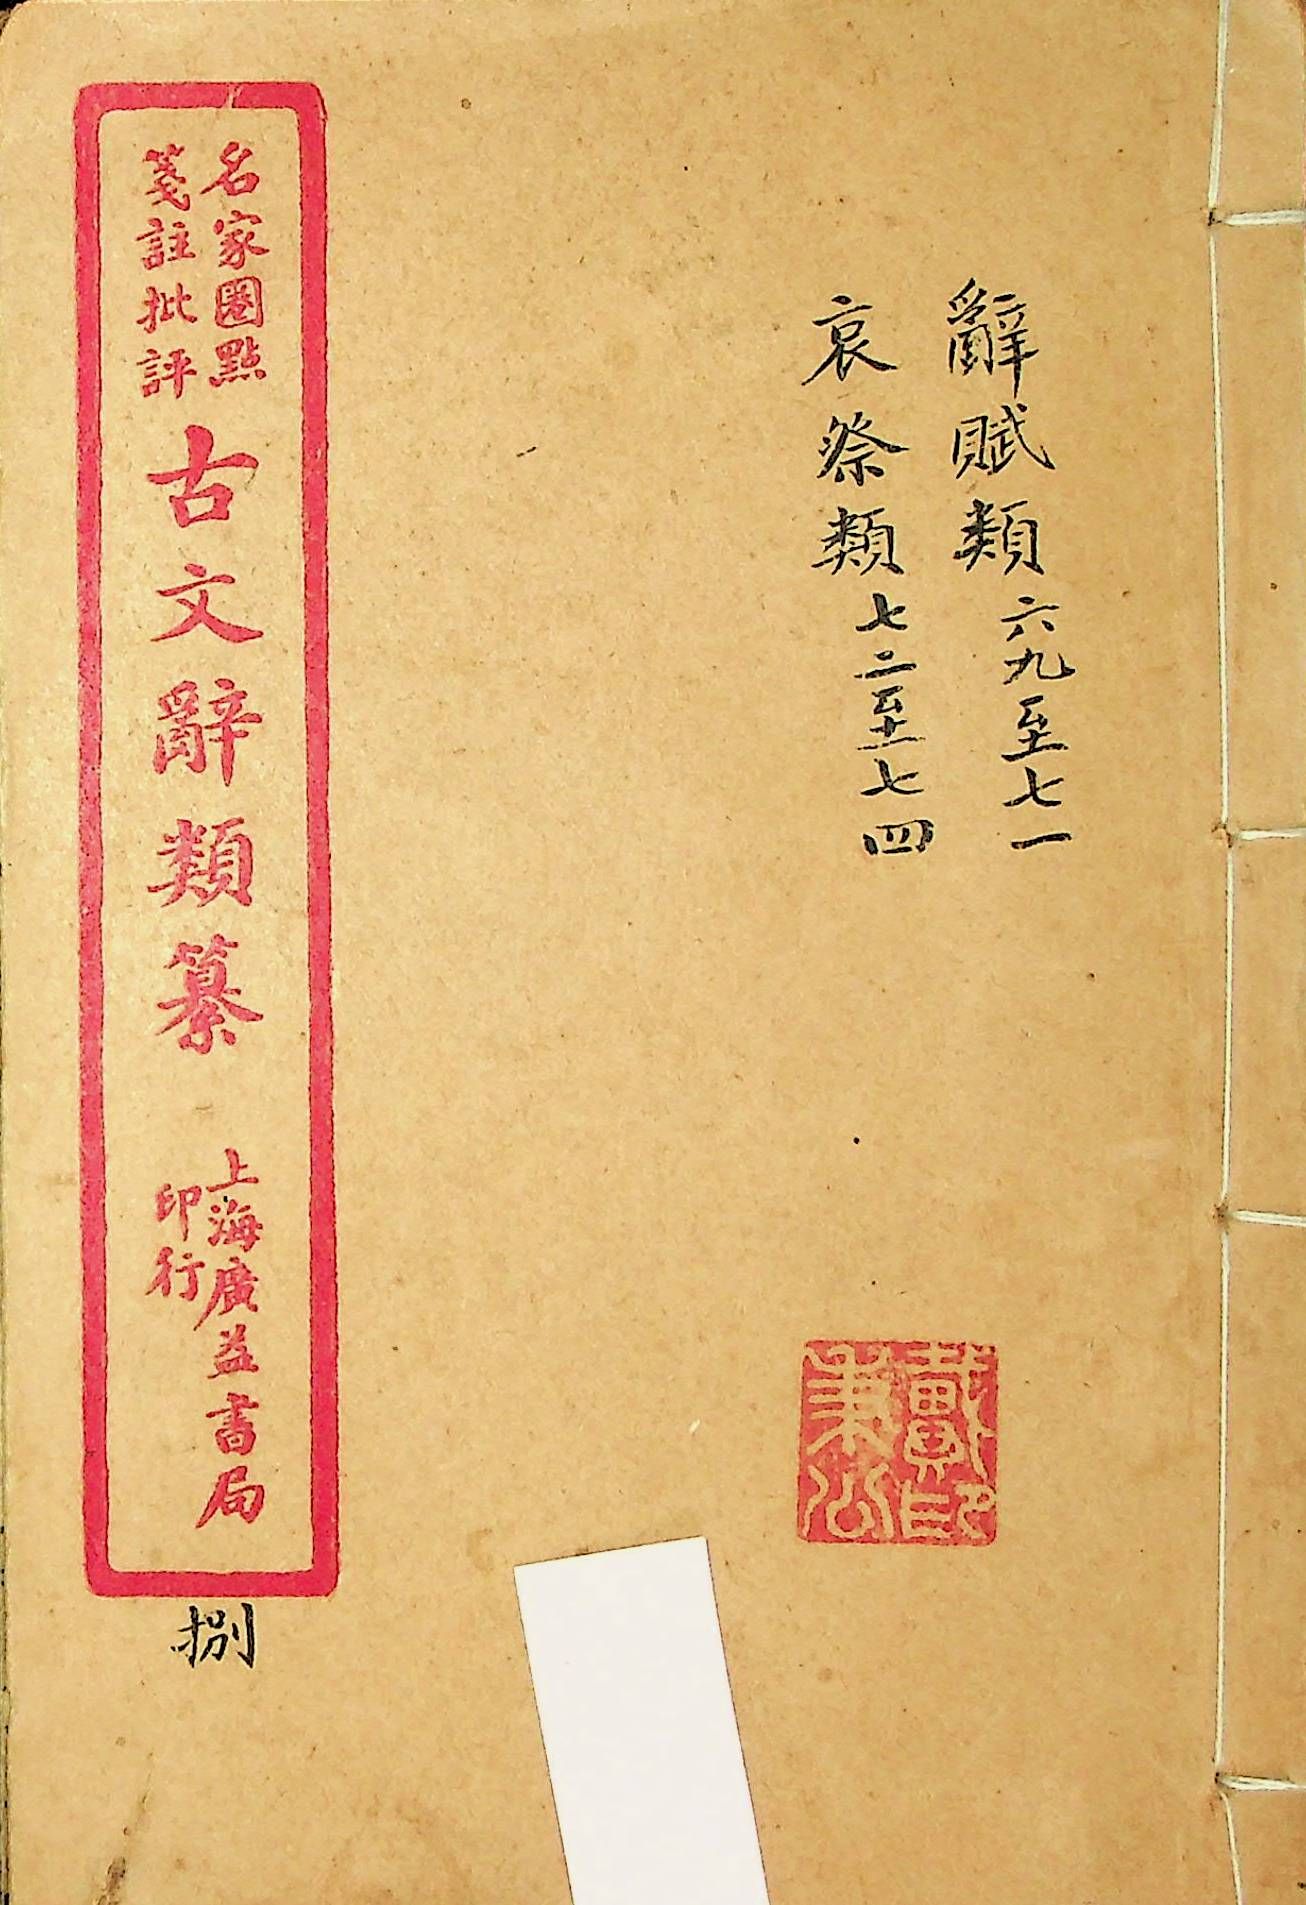 辭賦類六九至七一
哀祭類七二至七四
名家圈點
箋註批評
古文辭類纂
上海廣益書局
印行
捌
戴印
秉公